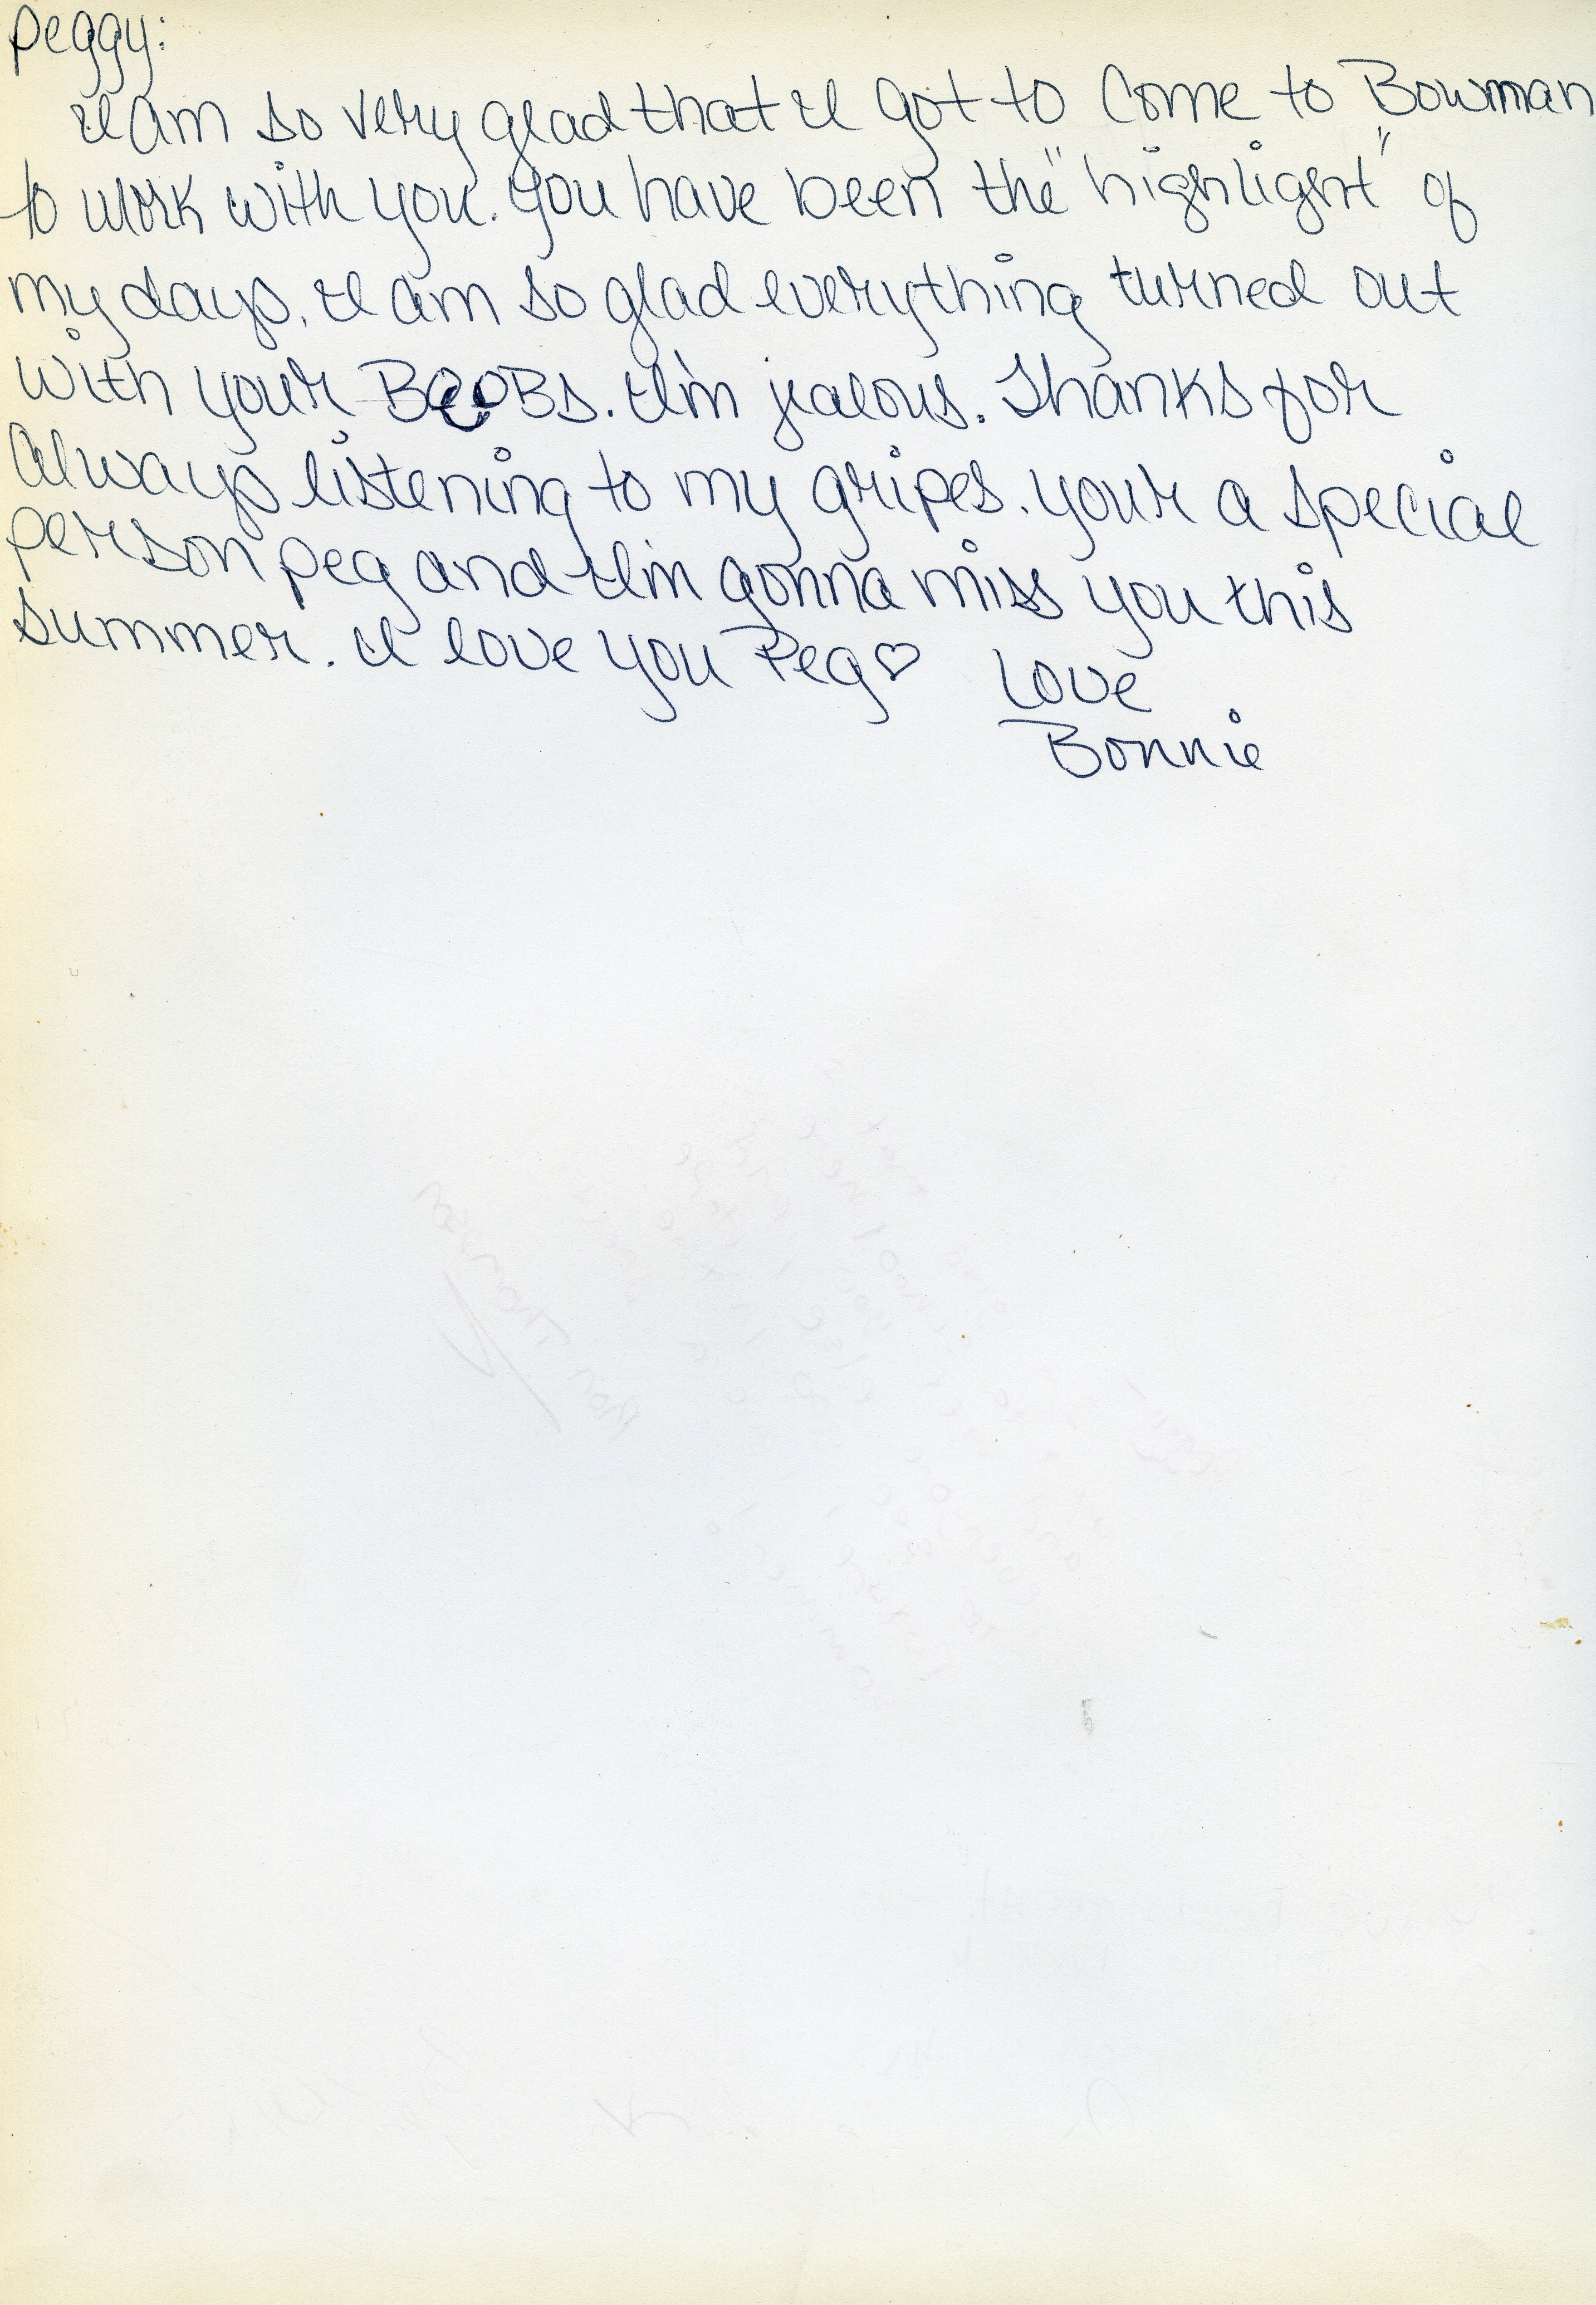 Peggy:
I am so very glad that I got to Come to Bowman
to work with you. You have been the "highlight" of
my days. I am so glad everything turned out
with your BOOBs. I'm jealous. Thanks for
Always listening to my gripes. your a special
person Peg and I'm gonna miss you this
summer. I love you Peg♡ Love
Bonnie